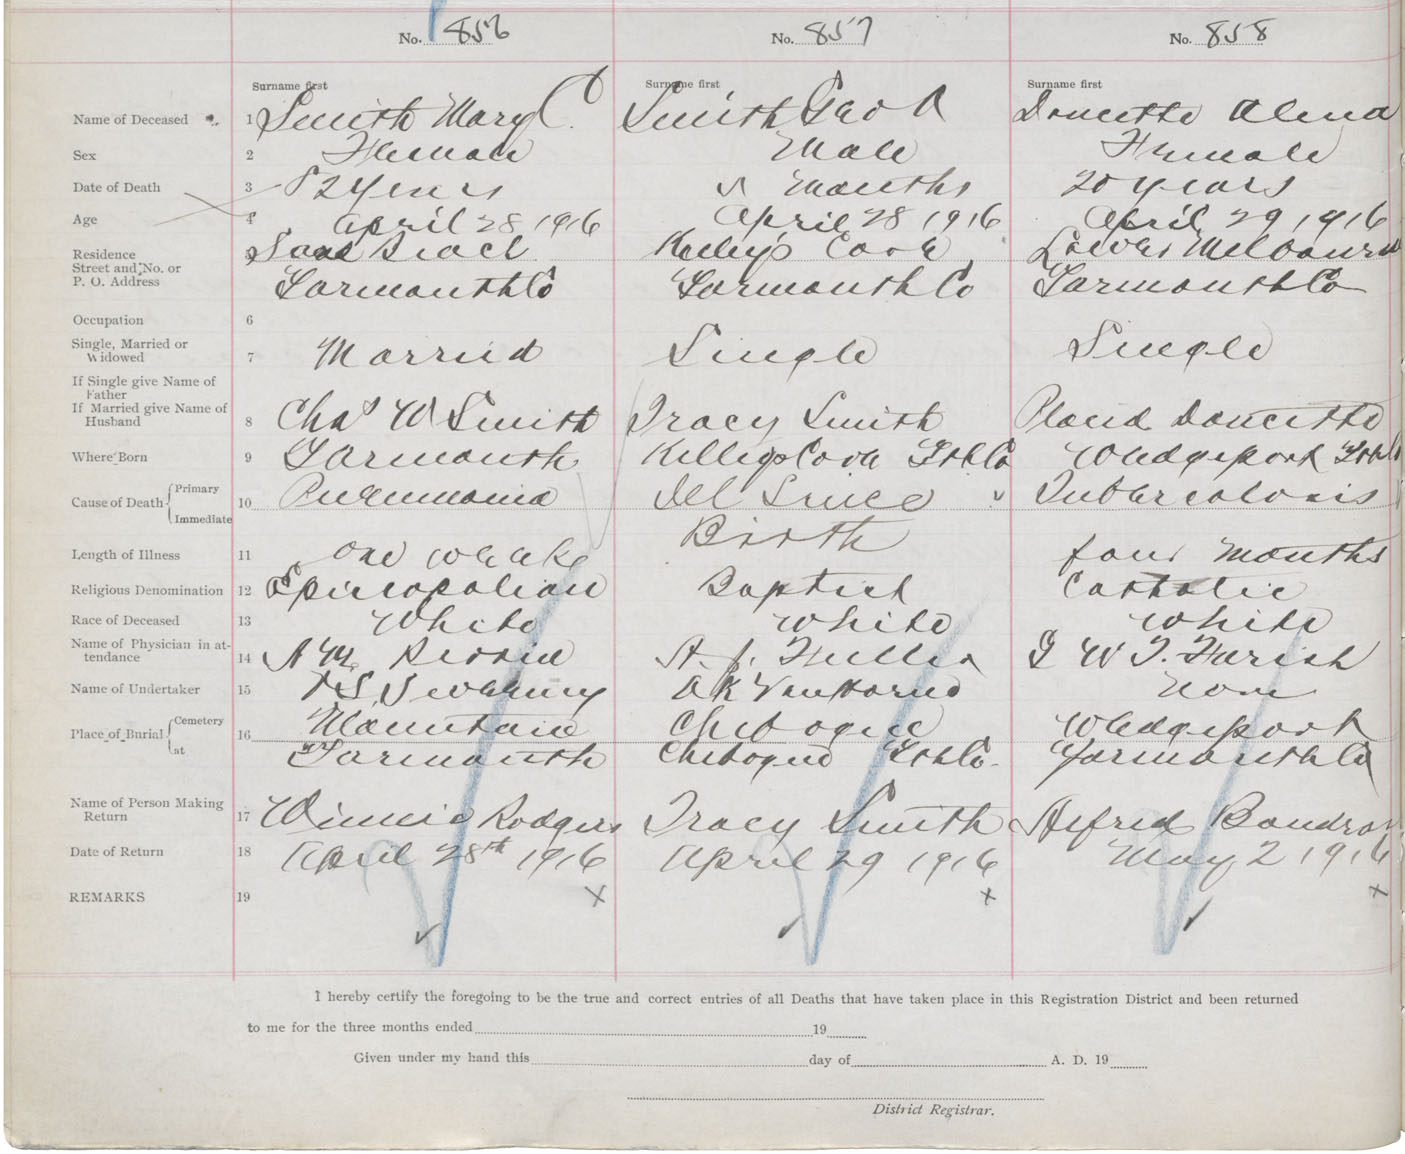 No. 856 No. 857 No. 858
Surname first Surname first Surname first
Name of Deceased 1 Smith Mary C. Smith Geo A Doucette Alena
Sex 2 Female Male Female
Date of Death 3 82 years months 20 years
Age 4 April 28 1916 April 28 1916 April 29 1916
Residence 5 Sand Beach Kelley's Cove Lower Melbourne
Street and No. or
P. O. Address Yarmouth Co Yarmouth Co Yarmouth Co
Occupation 6
Single, Married or
Widowed 7 Married Single Single
If Single give Name of
Father
If Married give Name of
Husband 8 Chas W Smith Tracy Smith Placid Doucette
Where Born 9 Yarmouth Kelleys Cove Yth Co Wedgeport Yth
Cause of Death Primary 10 Pneumonia Ill Since Tuberculosis
Immediate Birth
Length of Illness 11 one weeke four months
Religious Denomination 12 Episcopalian Baptist Catholic
Race of Deceased 13 White White White
Name of Physician in at-
tendance 14 A J. Fuller W T. Farish
Name of Undertaker 15 Sweeney A K VanHorne None
Place of Burial Cemetery 16 Mountain Chebogue Wedgeport
at Yarmouth Chebogue Yth Co. Yarmouth Co
Name of Person Making
Return 17 Winnie Rodgers Tracy Smith Alfred
Date of Return 18 April 28th 1916 April 29 1916 May 2 1916
REMARKS 19 x x x
I hereby certify the foregoing to be the true and correct entries of all Deaths that have taken place in this Registration District and been returned
to me for the three months ended 19
Given under my hand this day of A. D. 19
District Registrar.